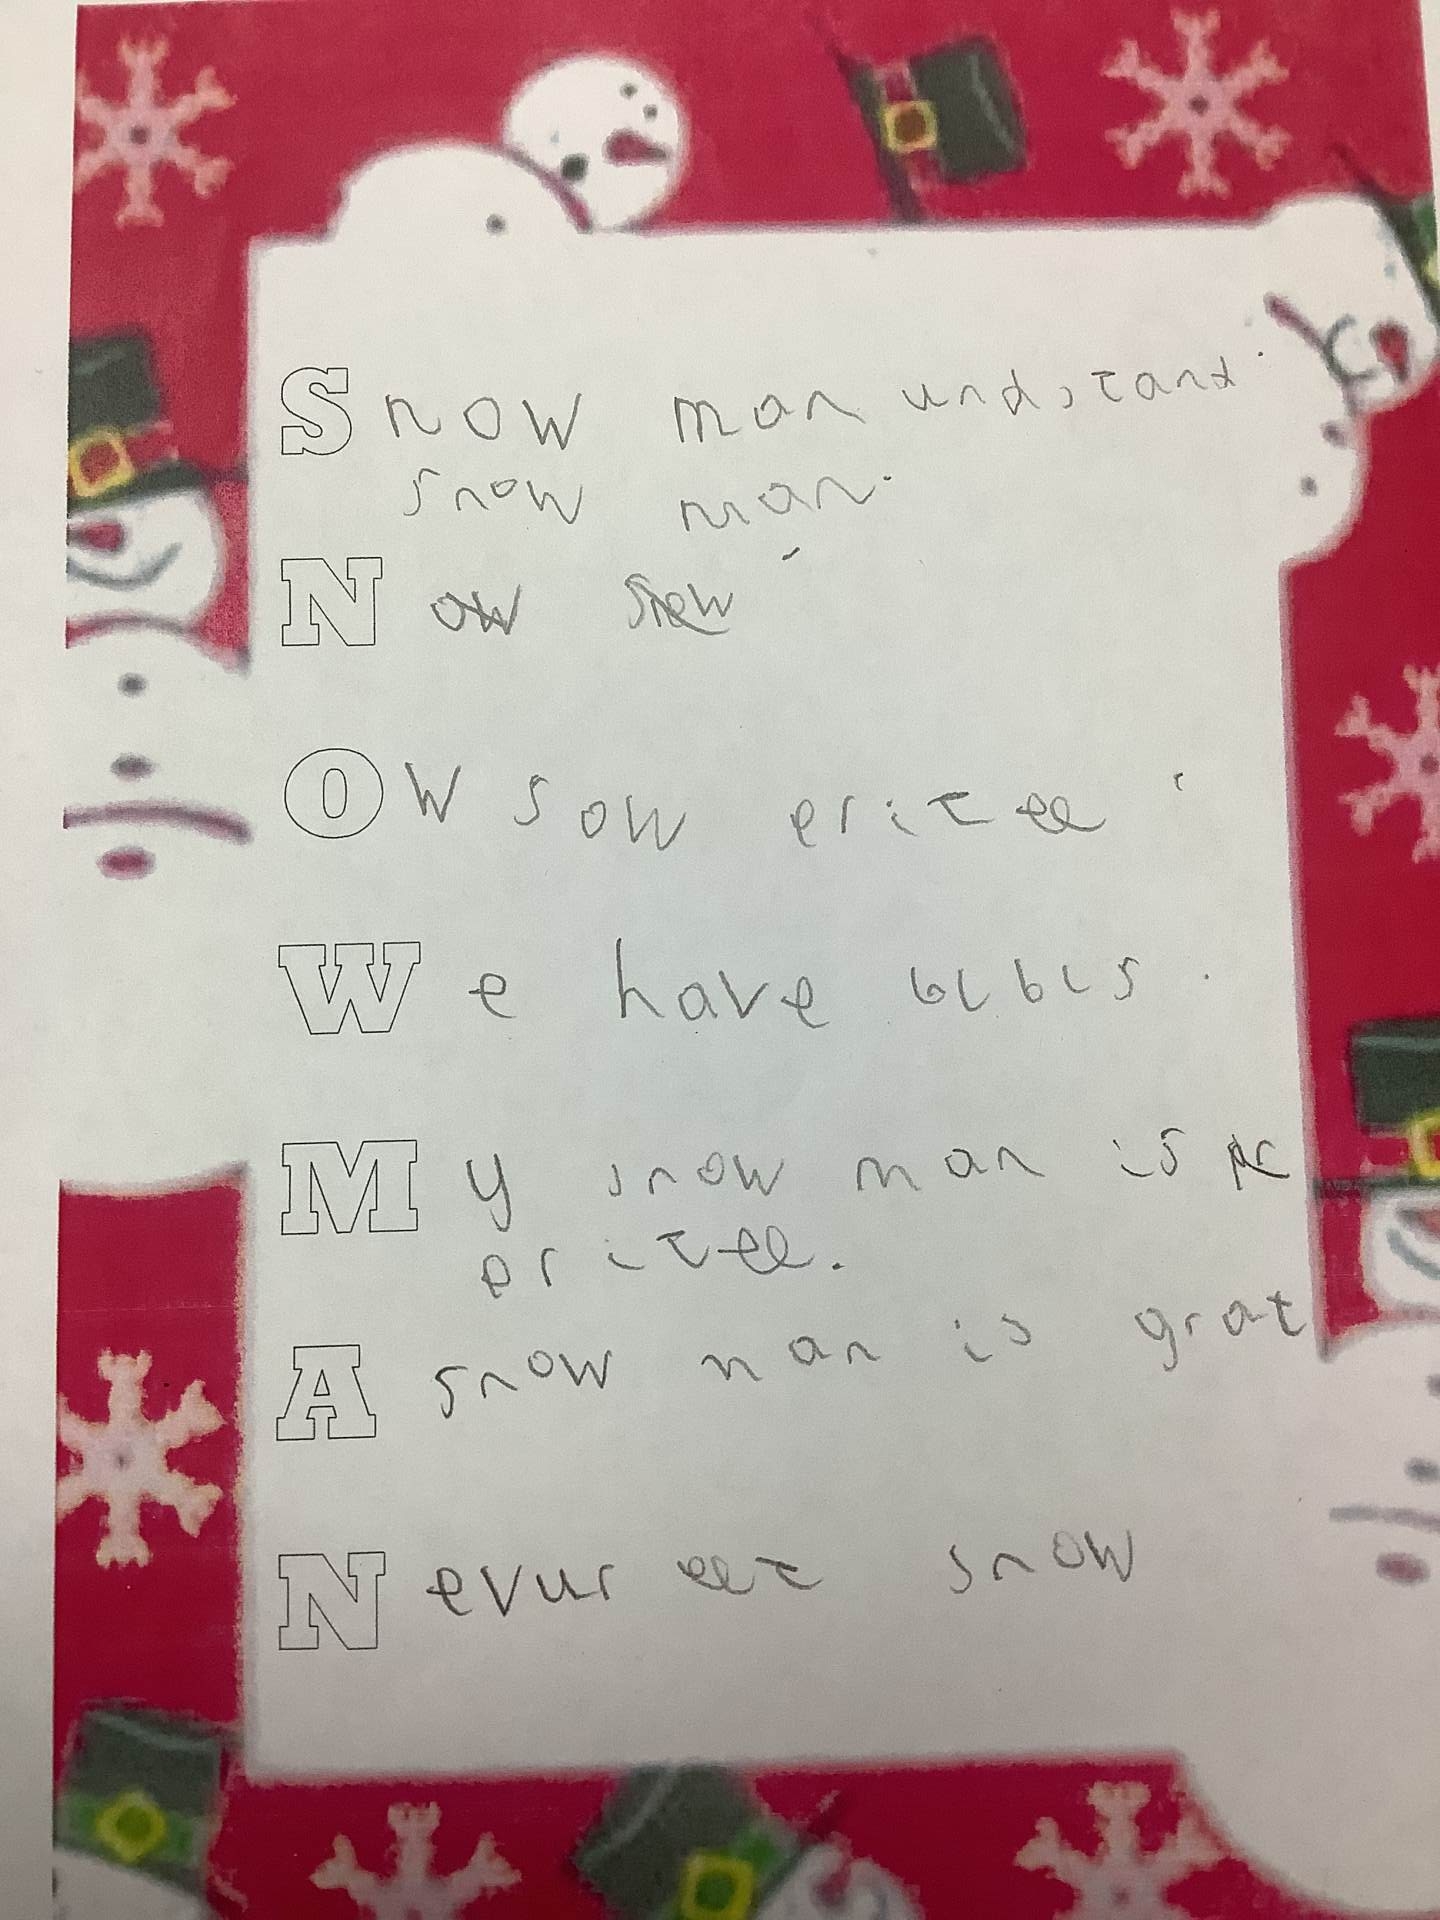 Snow man undstand
snow man.
Now snow
Ow sow pritee
We have blbls.
My snow man is
pritee.
A snow man is grat
Nevur eet snow